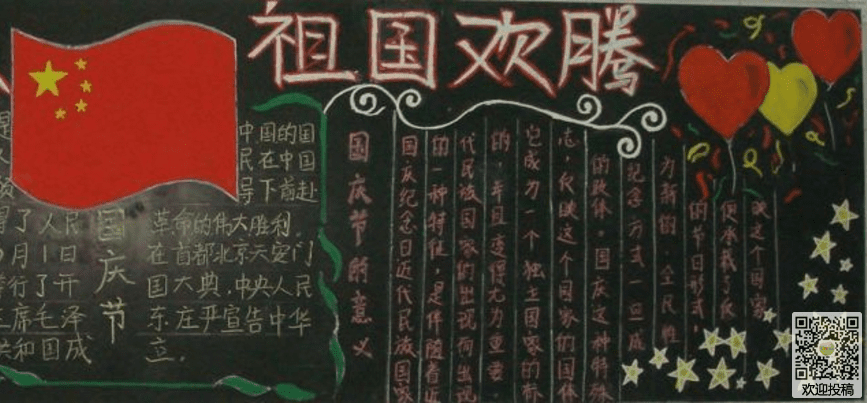 祖国欢腾
中国的国
民在中国
导下前赴
得了人民 革命的伟大胜利.
月1日 在首都北京天安门
举行了开 国大典.中央人民
主席毛泽 东庄严宣告中华
共和国成 立.
国庆节
国庆节的意义
国庆纪念日近代民族国家
的一种特征,是伴随着近
代民族国家的出现而出现
的,并且变得尤为重要.
它成为一个独立国家的标
志,反映这个国家的国体
的政体.国庆这种特殊
纪念方式一旦成
为新的、全民性
的节日形式,
便承载了反
映这个国家
欢迎投稿